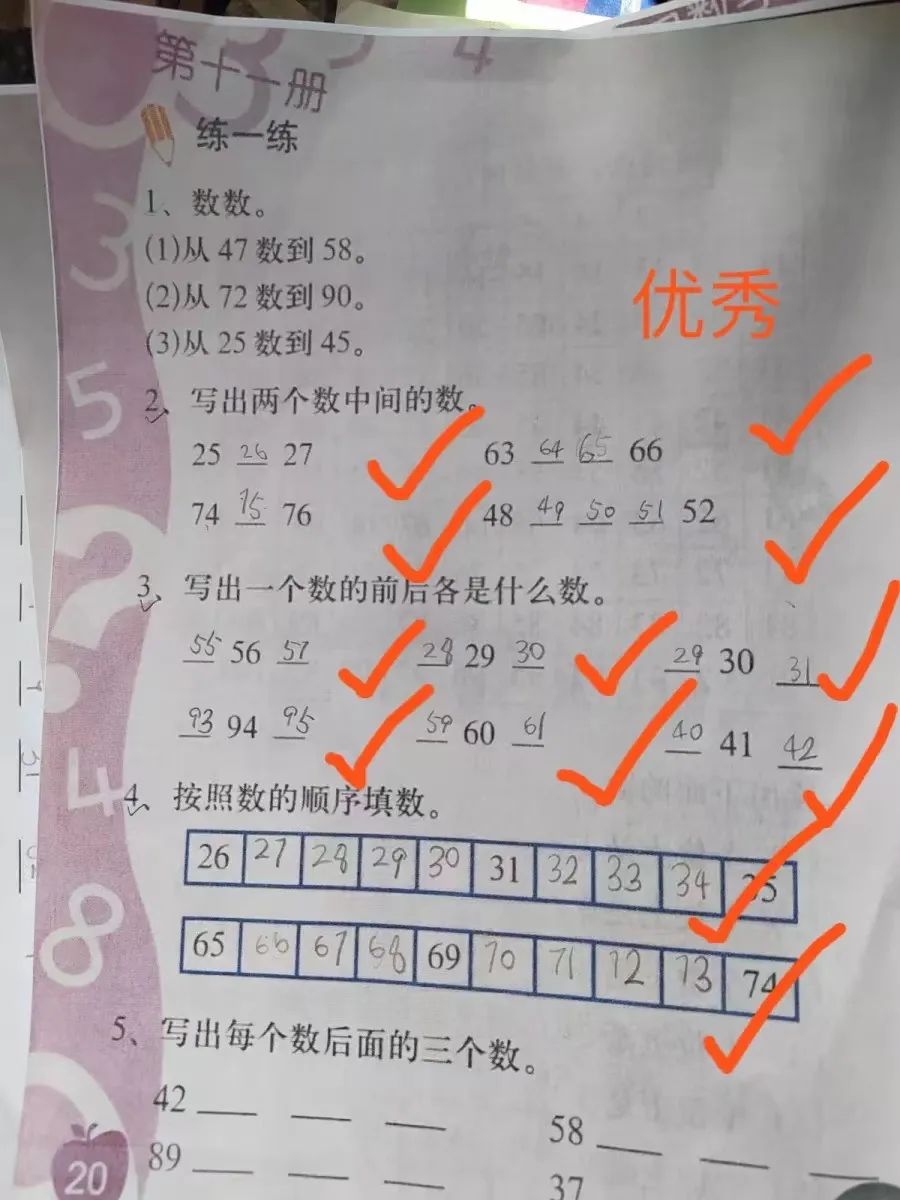 第十一册
练一练
1、数数。
(1)从 47 数到 58。
(2)从 72 数到 90。
(3)从 25 数到 45。
优秀
2、写出两个数中间的数。
25 26 27 63 64 65 66
74 75 76 48 49 50 51 52
3、写出一个数的前后各是什么数。
55 56 57 28 29 30 29 30 31
93 94 95 59 60 61 40 41 42
4、按照数的顺序填数。
26 27 28 29 30 31 32 33 34 35
65 66 67 68 69 70 71 72 73 74
5、写出每个数后面的三个数。
42 ___ ___ ___ 58 ___ ___ ___
89 ___ ___ ___ 37
20